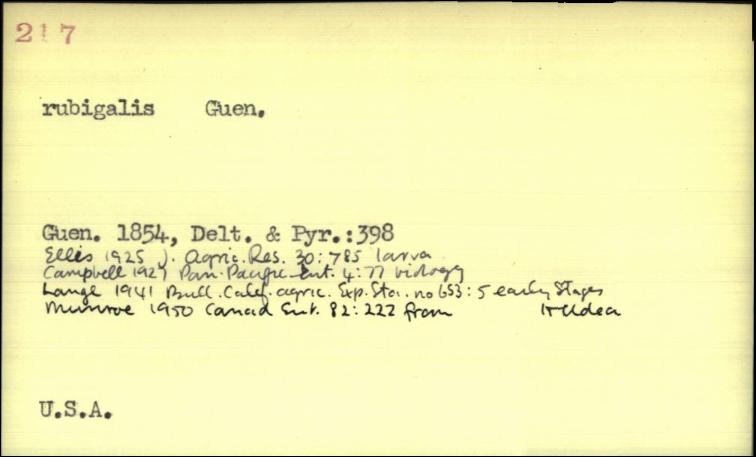 217
rubigalis Guen.
Guen. 1854, Delt. & Pyr.:398
Ellis 1925 J. Agric. Res. 30:785 larva
Campbell 1927 Pan-Pacific Ent. 4:77 biology
Lange 1941 Bull. Calif. agric. Exp. Sta. no 653:5 early stages
Munroe 1950 Canad Ent. 82:222 from Udea
U.S.A.